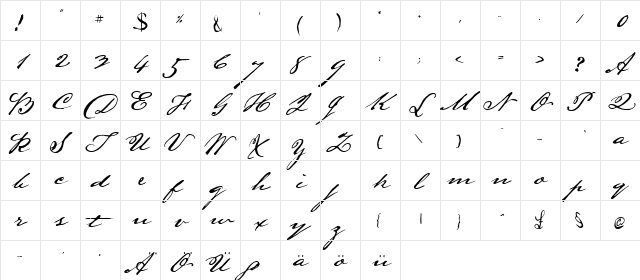 ! " # $ % & ' ( ) * + , - . / 0
1 2 3 4 5 6 7 8 9 : ; < = > ? A
B C D E F G H I J K L M N O P Q
R S T U V W X Y Z [ \ ] ^ _ ` a
b c d e f g h i j k l m n o p q
r s t u v w x y z { | } ~ £ § ©
Ä Ö Ü ß ä ö ü